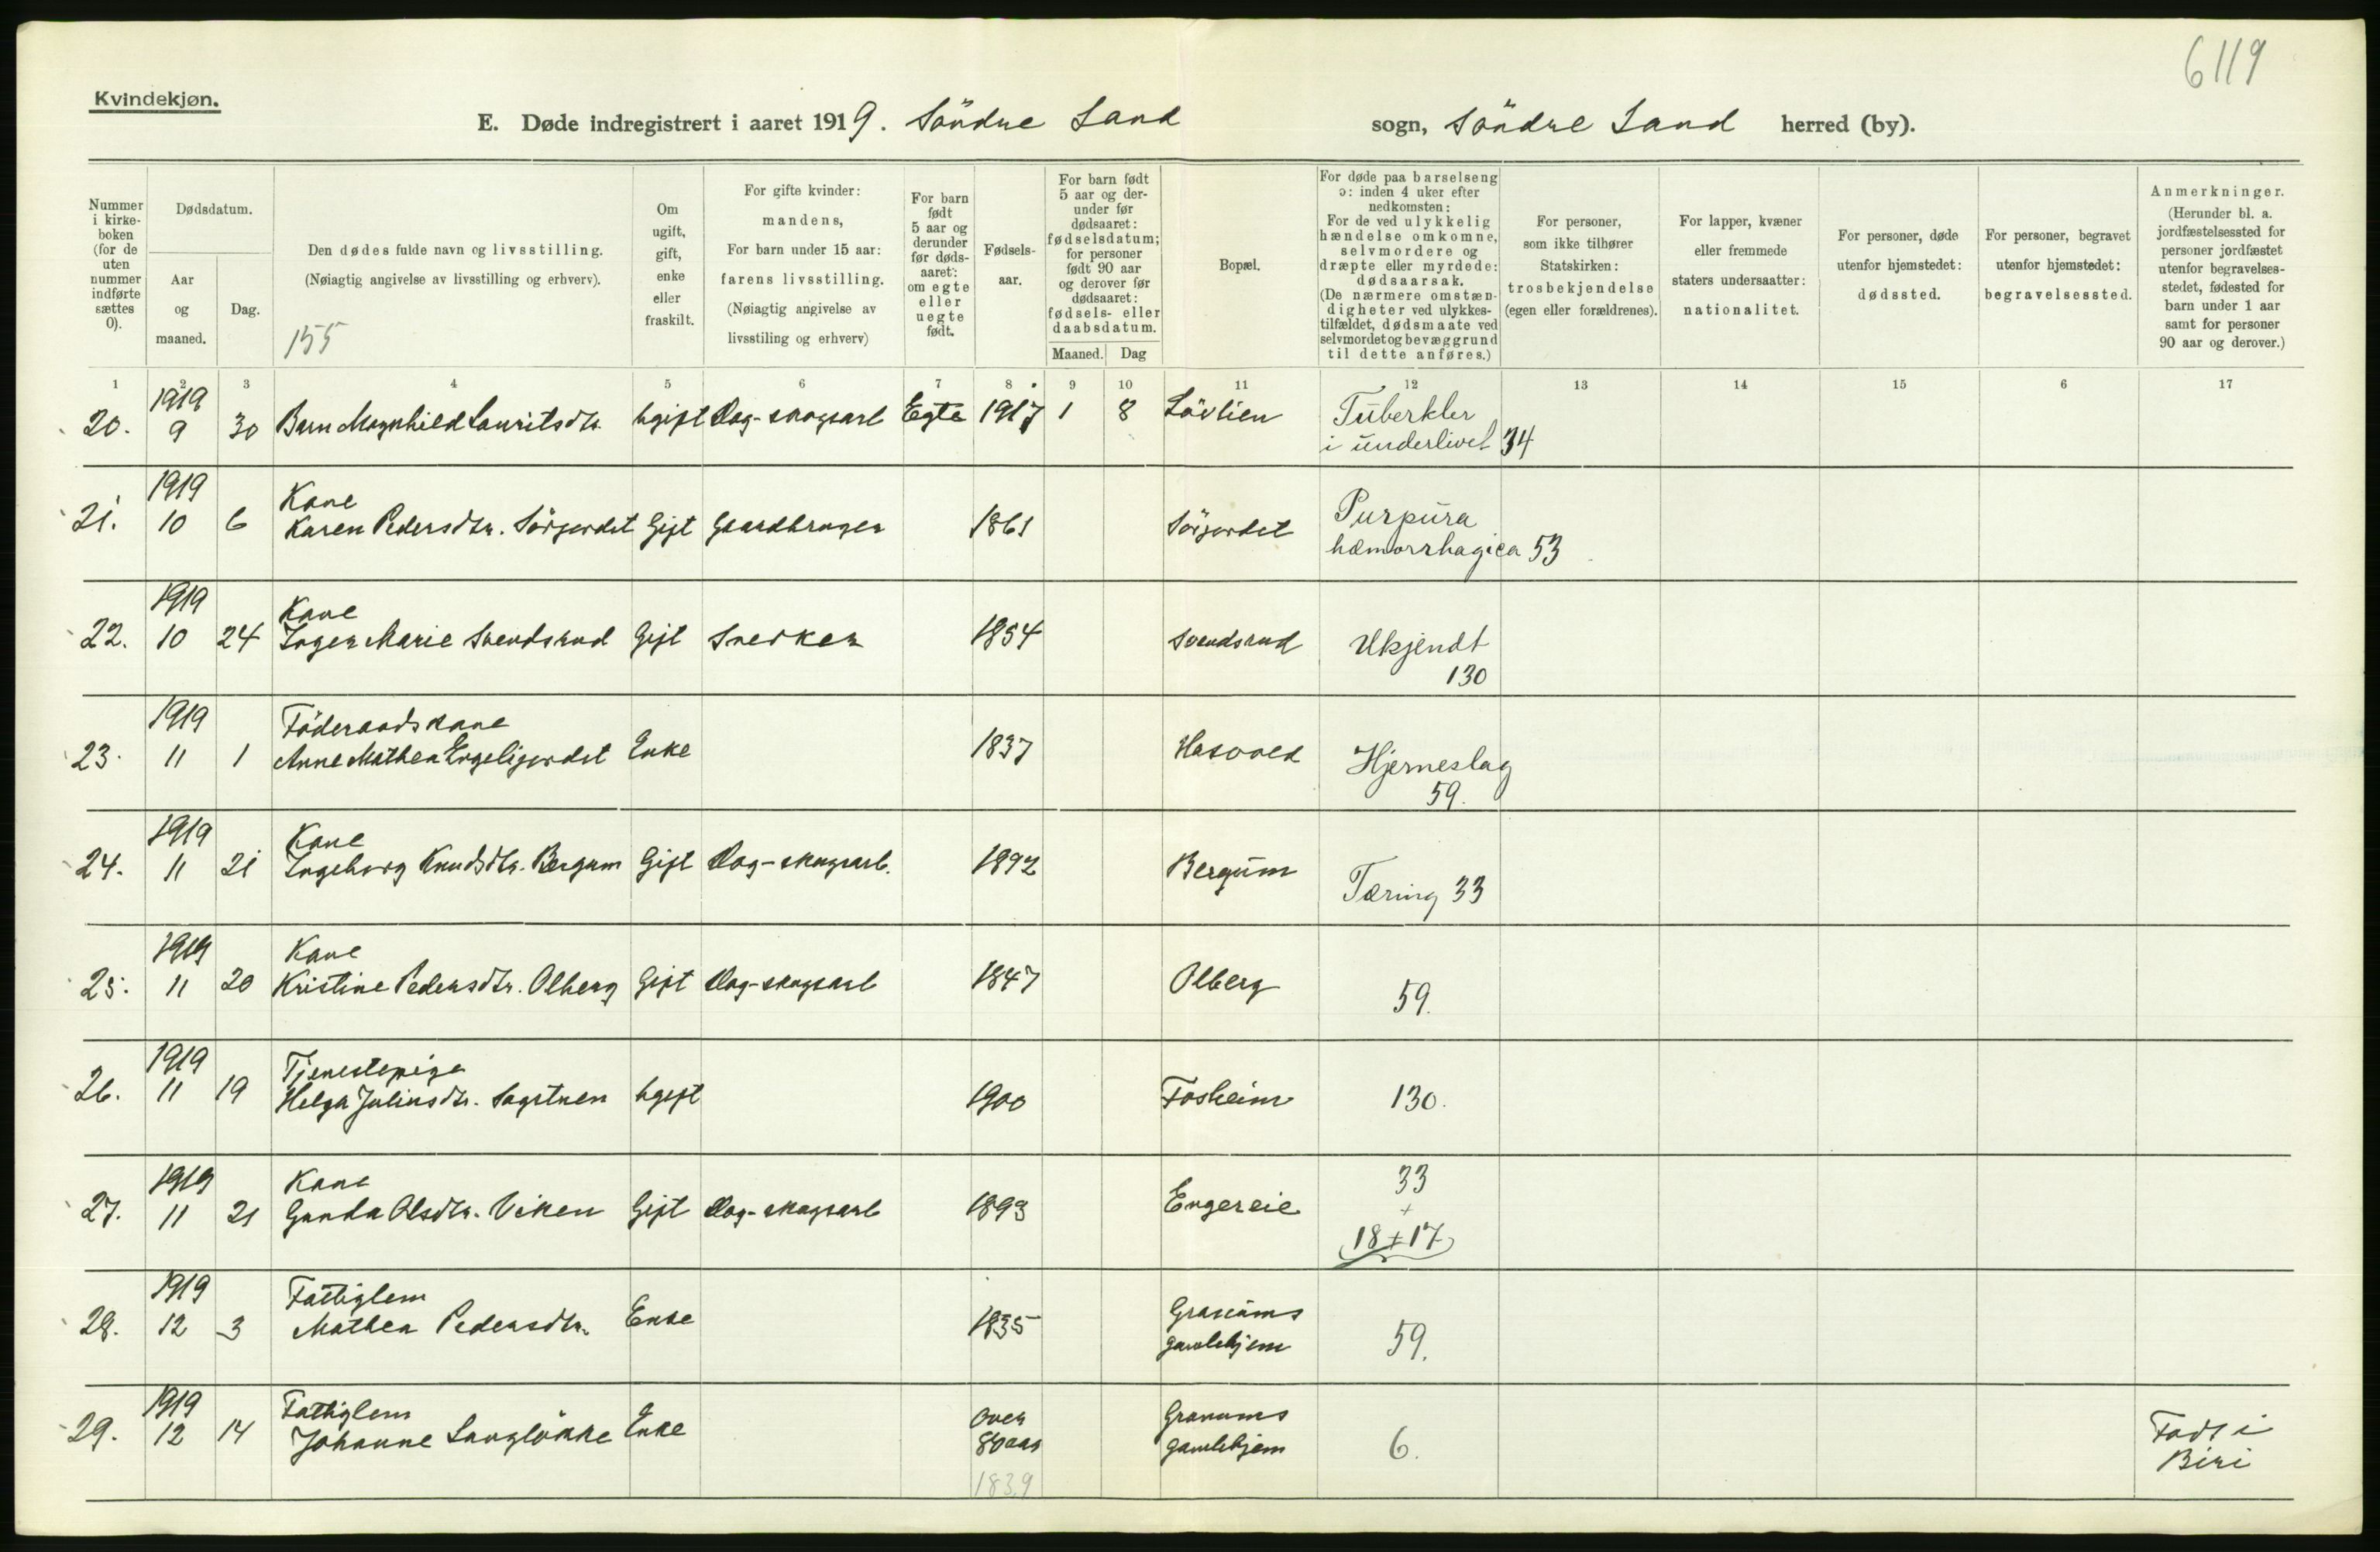 6119
Kvindekjøn.
E. Døde indregistrert i aaret 1919. Söndre Land sogn, Söndre Land herred (by).
Nummer i kirkeboken (for de uten nummer indførte sættes 0).
Dødsdatum.
Aar og maaned.
Dag.
Den dødes fulde navn og livsstilling.
(Nøiagtig angivelse av livsstilling og erhverv).
155
Om ugift, gift, enke eller fraskilt.
For gifte kvinder: mandens,
For barn under 15 aar: farens livsstilling.
(Nøiagtig angivelse av livsstiling og erhverv)
For barn født 5 aar og derunder før dødsaaret: om egte eller uegte født.
Fødselsaar.
For barn født 5 aar og derunder før dødsaaret: fødselsdatum; for personer født 90 aar og derover før dødsaaret: fødsels- eller daabsdatum.
Maaned. Dag
Bopæl.
For døde paa barselseng ɔ: inden 4 uker efter nedkomsten:
For de ved ulykkelig hændelse omkomne, selvmordere og dræpte eller myrdede: dødsaarsak.
(De nærmere omstændigheter ved ulykkestilfældet, dødsmaate ved selvmordet og bevæggrund til dette anføres.)
For personer, som ikke tilhører Statskirken: trosbekjendelse (egen eller forældrenes).
For lapper, kvæner eller fremmede staters undersaatter: nationalitet.
For personer, døde utenfor hjemstedet: dødssted.
For personer, begravet utenfor hjemstedet: begravelsessted.
Anmerkninger.
(Herunder bl. a. jordfæstelsessted for personer jordfæstet utenfor begravelsesstedet, fødested for barn under 1 aar samt for personer 90 aar og derover.)
1 2 3 4 5 6 7 8 9 10 11 12 13 14 15 6 17
20. 1919 9 30 Barn Magnhild Lauritsdtr. Ugift Dag-skogsarb Egte 1917 1 8 Lövlien Tuberkler i underlivet 34
21. 1919 10 6 Kone Karen Pedersdtr. Sörjordet Gift Gaardbruger 1861 Sörjordet Purpura hæmorrhagica 53
22. 1919 10 24 Kone Inger Marie Svendsrud Gift Snedker 1854 Svendsrud Ukjendt 130
23. 1919 11 1 Föderaadskone Anne Mathea Engelijordet Enke 1837 Hasvold Hjerneslag 59.
24. 1919 11 21 Kone Ingeborg Knudsdtr. Bergum Gift Dag-skogsarb. 1892 Bergum Tæring 33
25. 1919 11 20 Kone Kristine Pedersdtr. Olberg Gift Dag-skogsarb 1847 Olberg 59.
26. 1919 11 19 Tjenestepige Helga Juliusdtr. Sagstuen Ugift 1900 Fosheim 130.
27. 1919 11 21 Kone Gunda Olsdtr. Viken Gift Dag-skogsarb 1893 Engereie 33 + 18+17
28. 1919 12 3 Fattiglem Mathea Pedersdtr. Enke 1835 Granums gamlehjem 59.
29. 1919 12 14 Fattiglem Johanne Langlökke Enke Over 80 aar 1839 Granums gamlehjem 6. Född i Biri